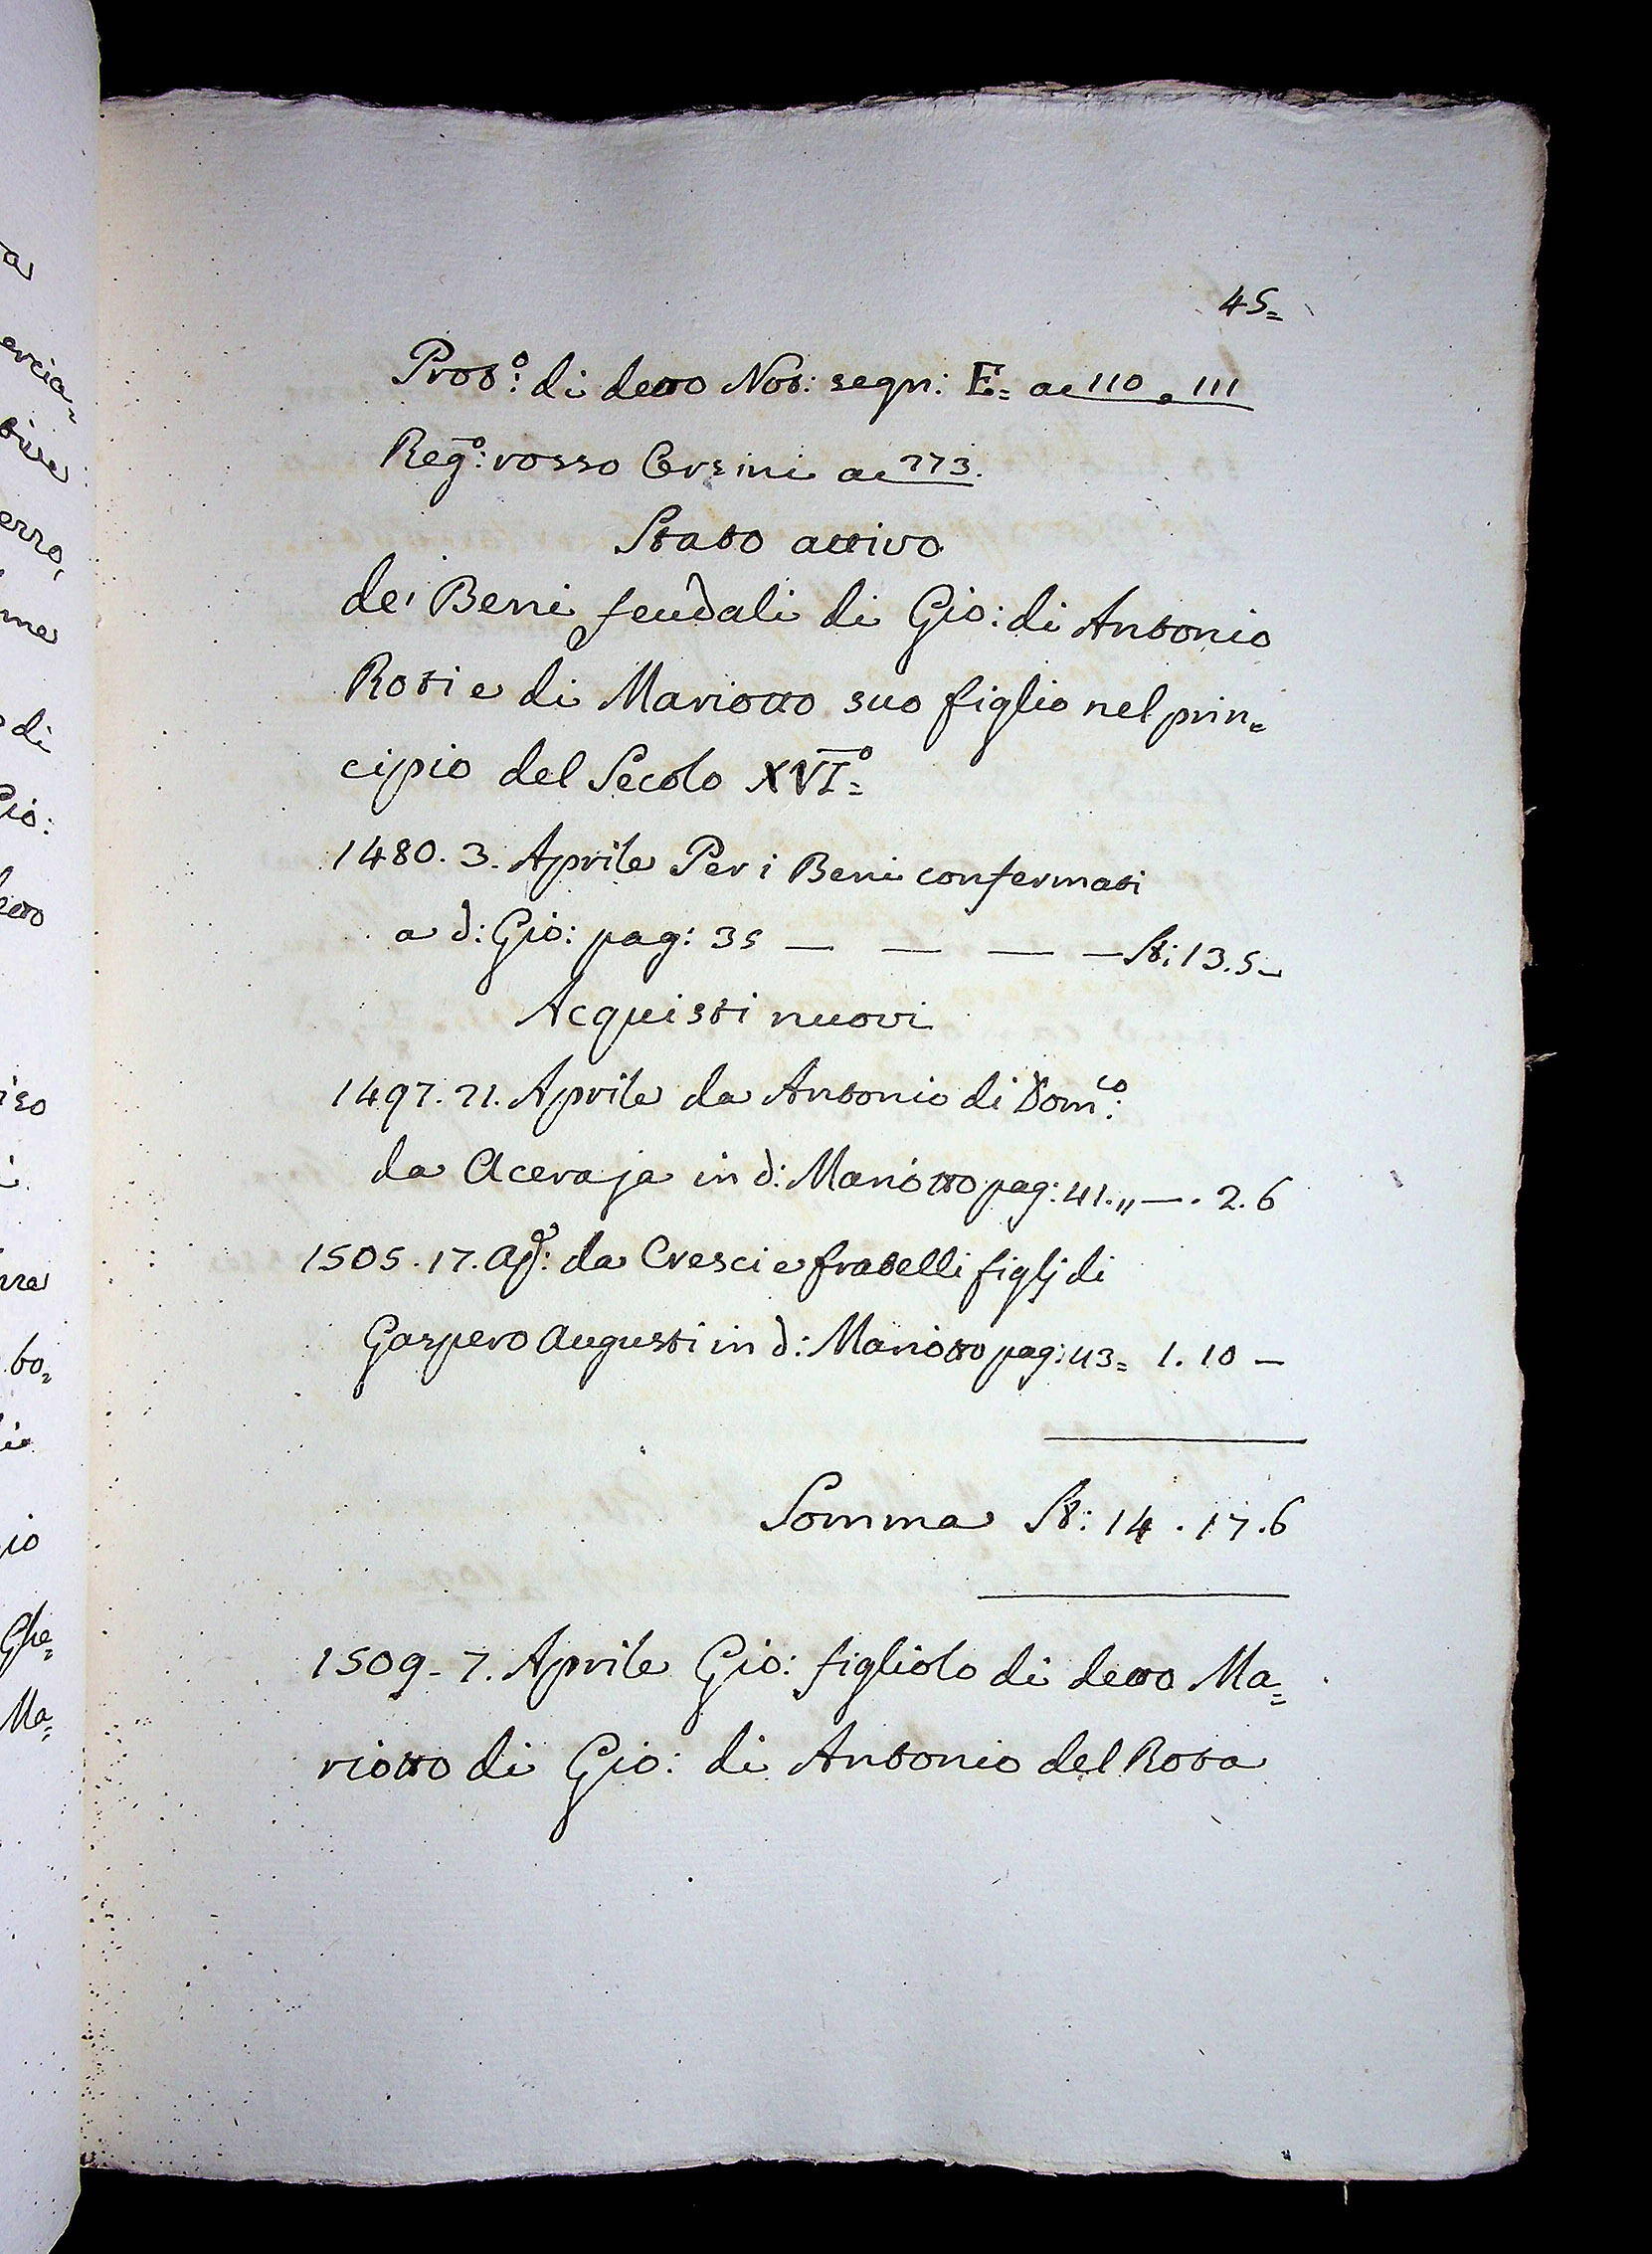 45=
Prot.º: di detto Not: segn: E= ac 110. e 111
Reg.º: rosso Corsini ac 273.
Stato attivo
dei Beni feudali di Gio: di Antonio
Roti e di Mariotto suo figlio nel prin=
cipio del Secolo XVIº=
1480. 3. Aprile Per i Beni confermati
a d: Gio: pag: 35 — — — — St: 13.5—
Acquisti nuovi
1497. 21. Aprile da Antonio di Dom.co:
da Aceraja in d: Mariotto pag: 41.,, —. 2. 6
1505. 17. Ag.º: da Cresci e fratelli figlj di
Gaspero Augusti in d: Mariotto pag: 43= 1. 10 —
Somma St: 14. 17. 6
1509- 7. Aprile Gio: figliolo di detto Ma=
riotto di Gio: di Antonio del Rota
a
ercia=
erro,
me
di
Gio:
detto
bo=
io
Ghe=
Ma=